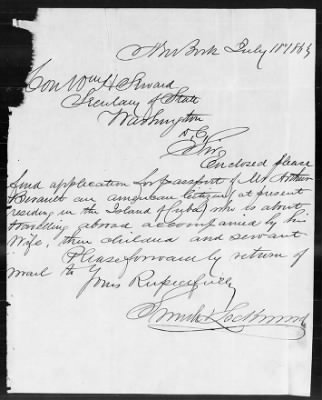 New York July 18th 186
Hon Wm H Seward
Secretary of State
Washington
D.C.
Sir
Enclosed please
find application for passport of Mr Arthur
an American Citizen at present
residing in the Island of Cuba who is about
travelling abroad accompanied by his
Wife, their children and servant
Please forward by return of
mail to Yours Respectfully
Smith